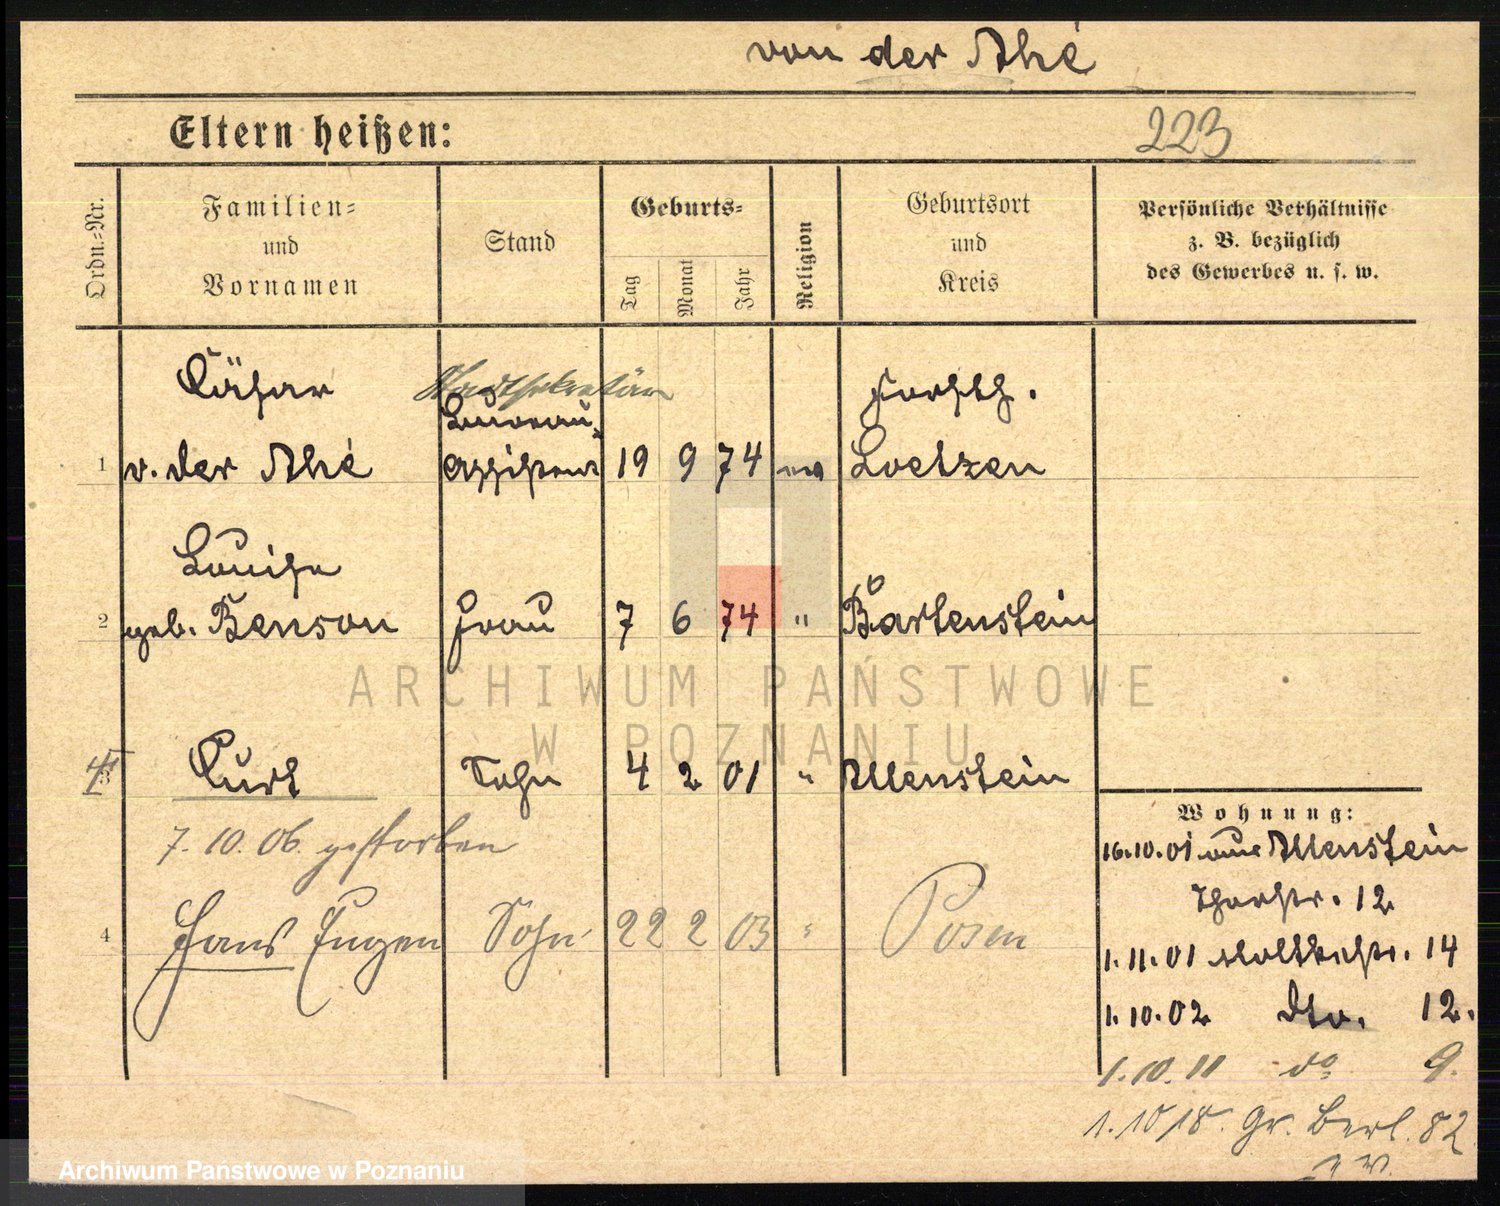 von der Ahé
Eltern heißen:
223
Ordn.-Nr.
Familien-
und
Vornamen
Stand
Geburts-
Tag
Monat
Jahr
Religion
Geburtsort
und
Kreis
Persönliche Verhältnisse
z. B. bezüglich
des Gewerbes u. s. w.
Cäsar
Stadtsekretär
Bureau-
1 v. der Ahé Assistent 19 9 74 ev Loetzen
Louise
2 geb. Benson Frau 7 6 74 " Bartenstein
3 Curt Sohn 4 2 01 " Allenstein
7.10.06. gestorben
4 Hans Eugen Sohn 22 2 03 " Posen
Wohnung:
16.10.01 aus Allenstein
12
1.11.01 Moltkestr. 14
1.10.02 dto. 12.
1.10.11 do 9.
1.10 18. Gr. Berl. 82
ARCHIWUM PAŃSTWOWE
W POZNANIU
Archiwum Państwowe w Poznaniu